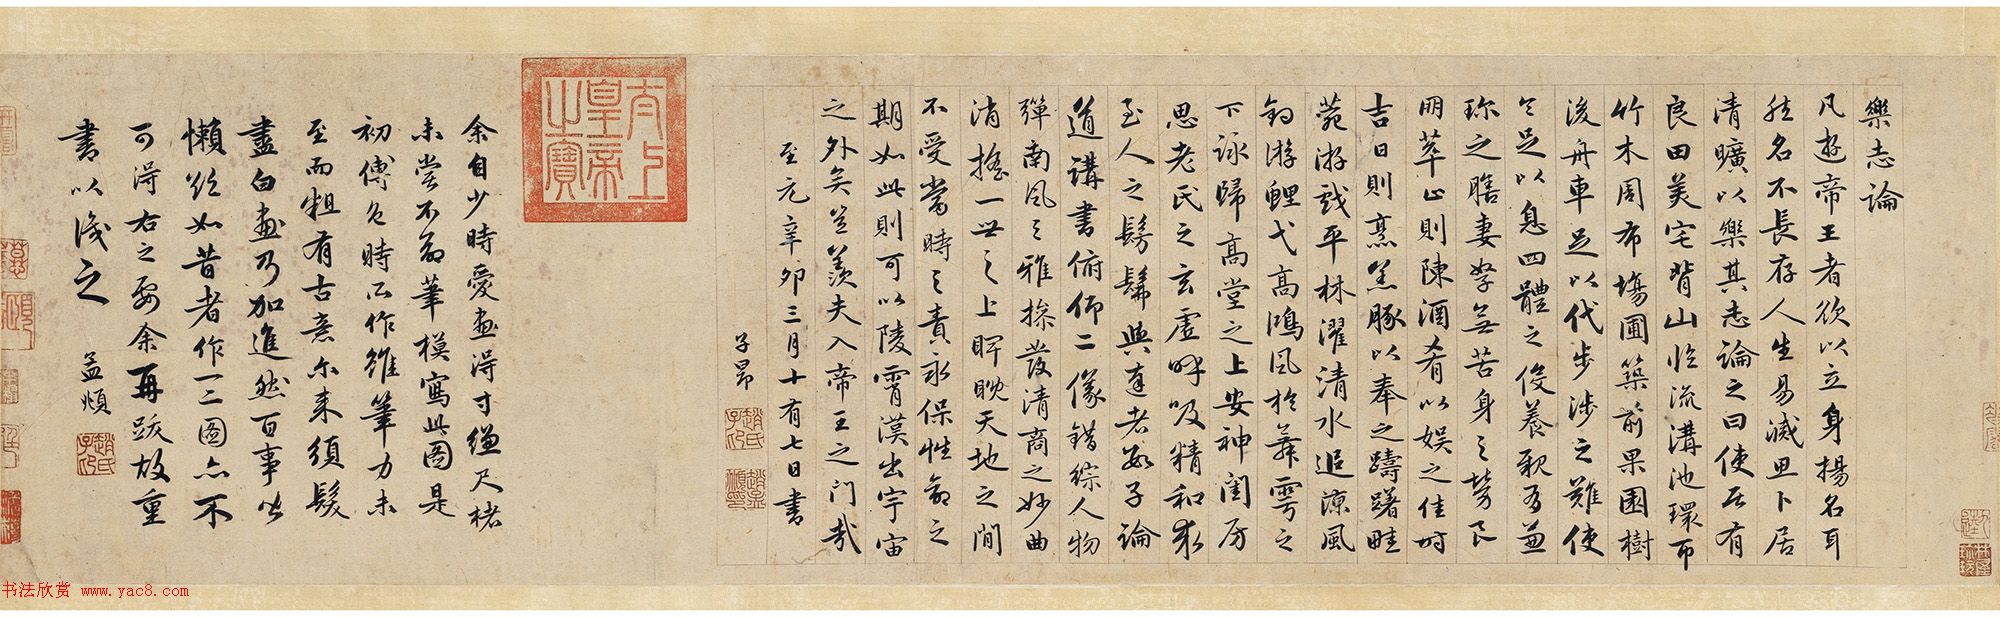 樂志論
凡遊帝王者欲以立身揚名耳
然名不長存人生易滅思卜居
清曠以樂其志論之曰使居有
良田美宅背山臨流溝池環帀
竹木周布場圃築前果園樹
後舟車足以代步涉之難使
令足以息四體之役養親有兼
珍之膳妻孥無苦身之勞良
朋萃止則陳酒肴以娛之佳時
吉日則烹羔豚以奉之躊躇畦
苑游戲平林濯清水追涼風
釣游鯉弋高鴻風於舞雩之
下詠歸高堂之上安神閨房
思老氏之玄虛呼吸精和求
至人之髣髴與達者數子論
道講書俯仰二儀錯綜人物
彈南風之雅操發清商之妙曲
消搖一世之上睥睨天地之間
不受當時之責永保性命之
期如此則可以陵霄漢出宇宙
之外矣豈羨夫入帝王之門哉
至元辛卯三月十有七日書
子昂
趙氏子昂
太上皇帝之寶
余自少時愛畫得寸縑尺楮
未嘗不命筆模寫此圖是
初傅色時所作雖筆力未
至而粗有古意尒來鬚髮
盡白畫乃加進然百事皆
懶欲如昔者作一二圖亦不
可得右之要余再跋故重
書以識之
孟頫
趙氏子昂
书法欣赏 www.yac8.com